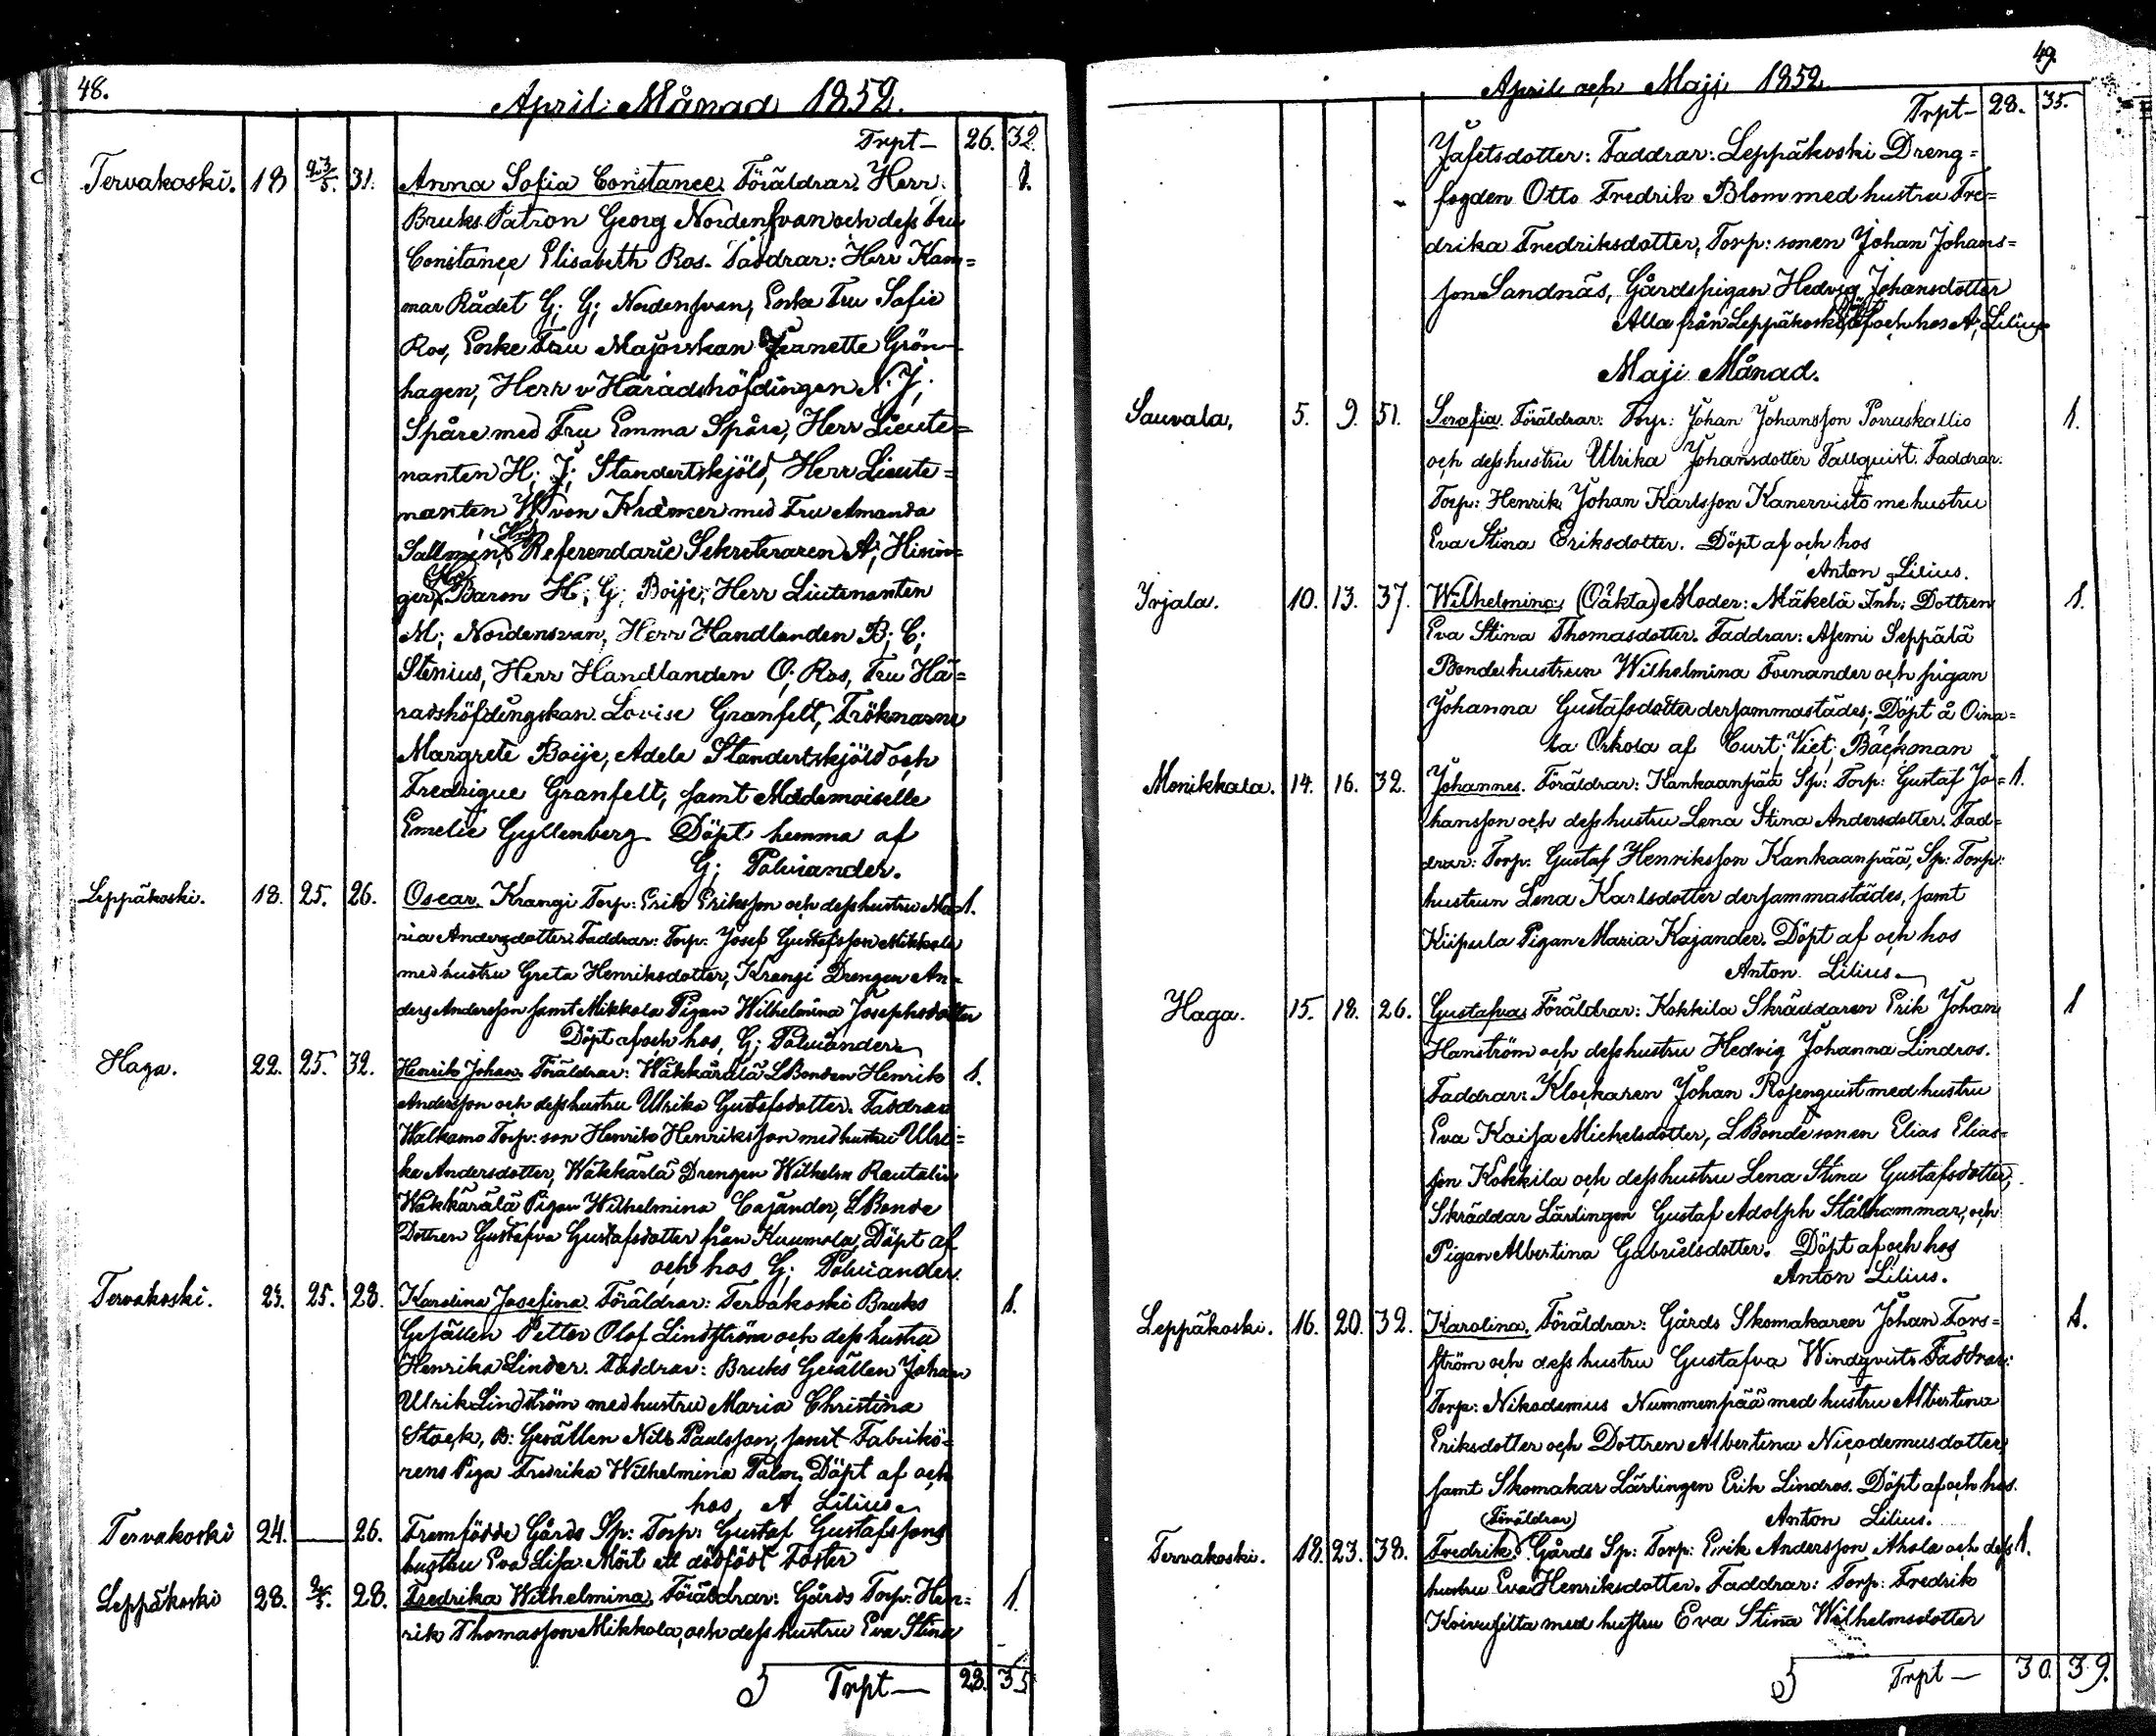 48.
April Månad 1852.
Trpt— 26. 32.
Tervakoski. 18 23/5. 31. Anna Sofia Constance. Föräldrar: Herr 1.
Bruks Patron Georg Nordensvan och dess Fru
Constance Elisabeth Ros. Faddrar: Herr Kam=
mar Rådet G; G; Nordensvan, Enke Fru Sofie
Ros, Enke Fru Majorskan Jeanette Grön-
hagen, Herr v Häradshöfdingen N. J;
Spåre med Fru Emma Spåre, Herr Lieute=
nanten H; J; Standertskjöld, Herr Lieute=
nanten W von Kræmer med Fru Amanda
Sallmén, Hr Referendarie Sekreteraren A; Hising=
ger, Hr Baron H; G; Boije, Herr Lieutenanten
M; Nordensvan, Herr Handlanden B; C;
Stenius, Herr Handlanden O; Ros, Fru Hä=
radshöfdingskan Lovise Granfelt, Fröknarne
Margrete Boije, Adele Standertskjöld och
Fredrique Granfelt, samt Mademoiselle
Emelie Gyllenberg. Döpt hemma af
G; Polviander.
Leppäkoski. 18. 25. 26. Oscar. Krangi Torp: Erik Eriksson och dess hustru Ma= 1.
ria Andersdotter. Faddrar: Torp: Josef Gustafsson Mikkola
med hustru Greta Henriksdotter, Krangi Drengen An=
ders Andersson samt Mikkola Pigan Wilhelmina Josephsdotter
Döpt af och hos, G; Polviander
Haga. 22. 25. 32. Henrik Johan. Föräldrar: Wäkkärälä LBonden Henrik 1.
Andersson och dess hustru Ulrika Gustafsdotter. Faddrar
Walkamo Torp: son Henrik Henriksson med hustru Ulri=
ka Andersdotter, Wäkkärlä Drengen Wilhelm Rautalin
Wäkkärälä Pigan Wilhelmina Cajander, LBonde
Dottren Gustafva Gustafsdotter från Kuumola, Döpt af
och hos G; Polviander.
Tervakoski. 23. 25. 28. Karolina Josefina. Föräldrar: Tervakoski Bruks 1.
Gesällen Petter Olof Lindström och dess hustru
Henrika Linder. Faddrar: Bruks Gesällen Johan
Ulrik Lindström med hustru Maria Christina
Stock, B: Gesällen Nils Paulsson, samt Fabrikö=
rens Piga Fredrika Wilhelmina Palm, Döpt af och
hos A Lilius.
Tervakoski 24. — 26. Framfödde Gårds Sp: Torp: Gustaf Gustafssons
hustru Eva Lisa Möit ett dödfödt Foster
Leppäkoski 28. 2/5. 28. Fredrika Wilhelmina. Föräldrar: Gårds Torp: Hen= 1.
rik Thomasson Mikkola, och dess hustru Eva Stina
Trpt— 28. 35
49.
April och Maji 1852.
Trpt— 28. 35.
Jafetsdotter: Faddrar: Leppäkoski Dreng=
fogden Otto Fredrik Blom med hustru Fre=
drika Fredriksdotter, Torp: sonen Johan Johans=
son Sandnäs, Gårdspigan Hedvig Johansdotter
Alla från Leppäkoski, Döpt af och hos A; Lilius
Maji Månad.
Sauvala, 5. 9. 51. Serafia. Föräldrar: Torp: Johan Johansson Porraskallio 1.
och dess hustru Ulrika Johansdotter Tallquist. Faddrar.
Torp: Henrik Johan Karlsson Kanervisto me hustru
Eva Stina Eriksdotter. Döpt af och hos
Anton Lilius.
Irjala. 10. 13. 37. Wilhelmina. (Oäkta) Moder: Mäkelä Inh: Dottren 1.
Eva Stina Thomasdotter. Faddrar: Asemi Seppälä
Bondehustrun Wilhelmina Fornander och pigan
Johanna Gustafsdotter dersammastädes; Döpt å Oina=
la Orkola af Curt; Vict; Bäckman
Monikkala. 14. 16. 32. Johannes. Föräldrar: Kankaanpää Sp: Torp: Gustaf Jo= 1.
hansson och dess hustru Lena Stina Andersdotter. Fad=
drar: Torp: Gustaf Henriksson Kankaanpää, Sp: Torp:
hustrun Lena Karlsdotter dersammastädes, samt
Kiipula Pigan Maria Kajander. Döpt af och hos
Anton Lilius
Haga. 15. 18. 26. Gustafva. Föräldrar: Kokkila Skräddaren Erik Johan 1
Hanström och dess hustru Hedvig Johanna Lindros.
Faddrar: Klockaren Johan Rosenquist med hustru
Eva Kaisa Michelsdotter, LBonde sonen Elias Elias=
son Kokkila och dess hustru Lena Stina Gustafsdotter,
Skräddar Lärlingen Gustaf Adolph Stålhammar, och
Pigan Albertina Gabrielsdotter. Döpt af och hos
Anton Lilius.
Leppäkoski. 16. 20. 32. Karolina. Föräldrar: Gårds Skomakaren Johan Fors= 1.
ström och dess hustru Gustafva Windqvist. Faddrar:
Torp: Nikodemus Nummenpää med hustru Albertina
Eriksdotter och Dottren Albertina Nicodemusdotter
samt Skomakar Lärlingen Erik Lindros. Döpt af och hos.
Anton Lilius.
Tervakoski. 18. 23. 38. Fredrik. (Föräldrar) Gårds Sp: Torp: Erik Andersson Ahola och dess 1.
hustru Eva Henriksdotter. Faddrar: Torp: Fredrik
Koivusilta med hustru Eva Stina Wilhelmsdotter
Trpt— 30. 39.